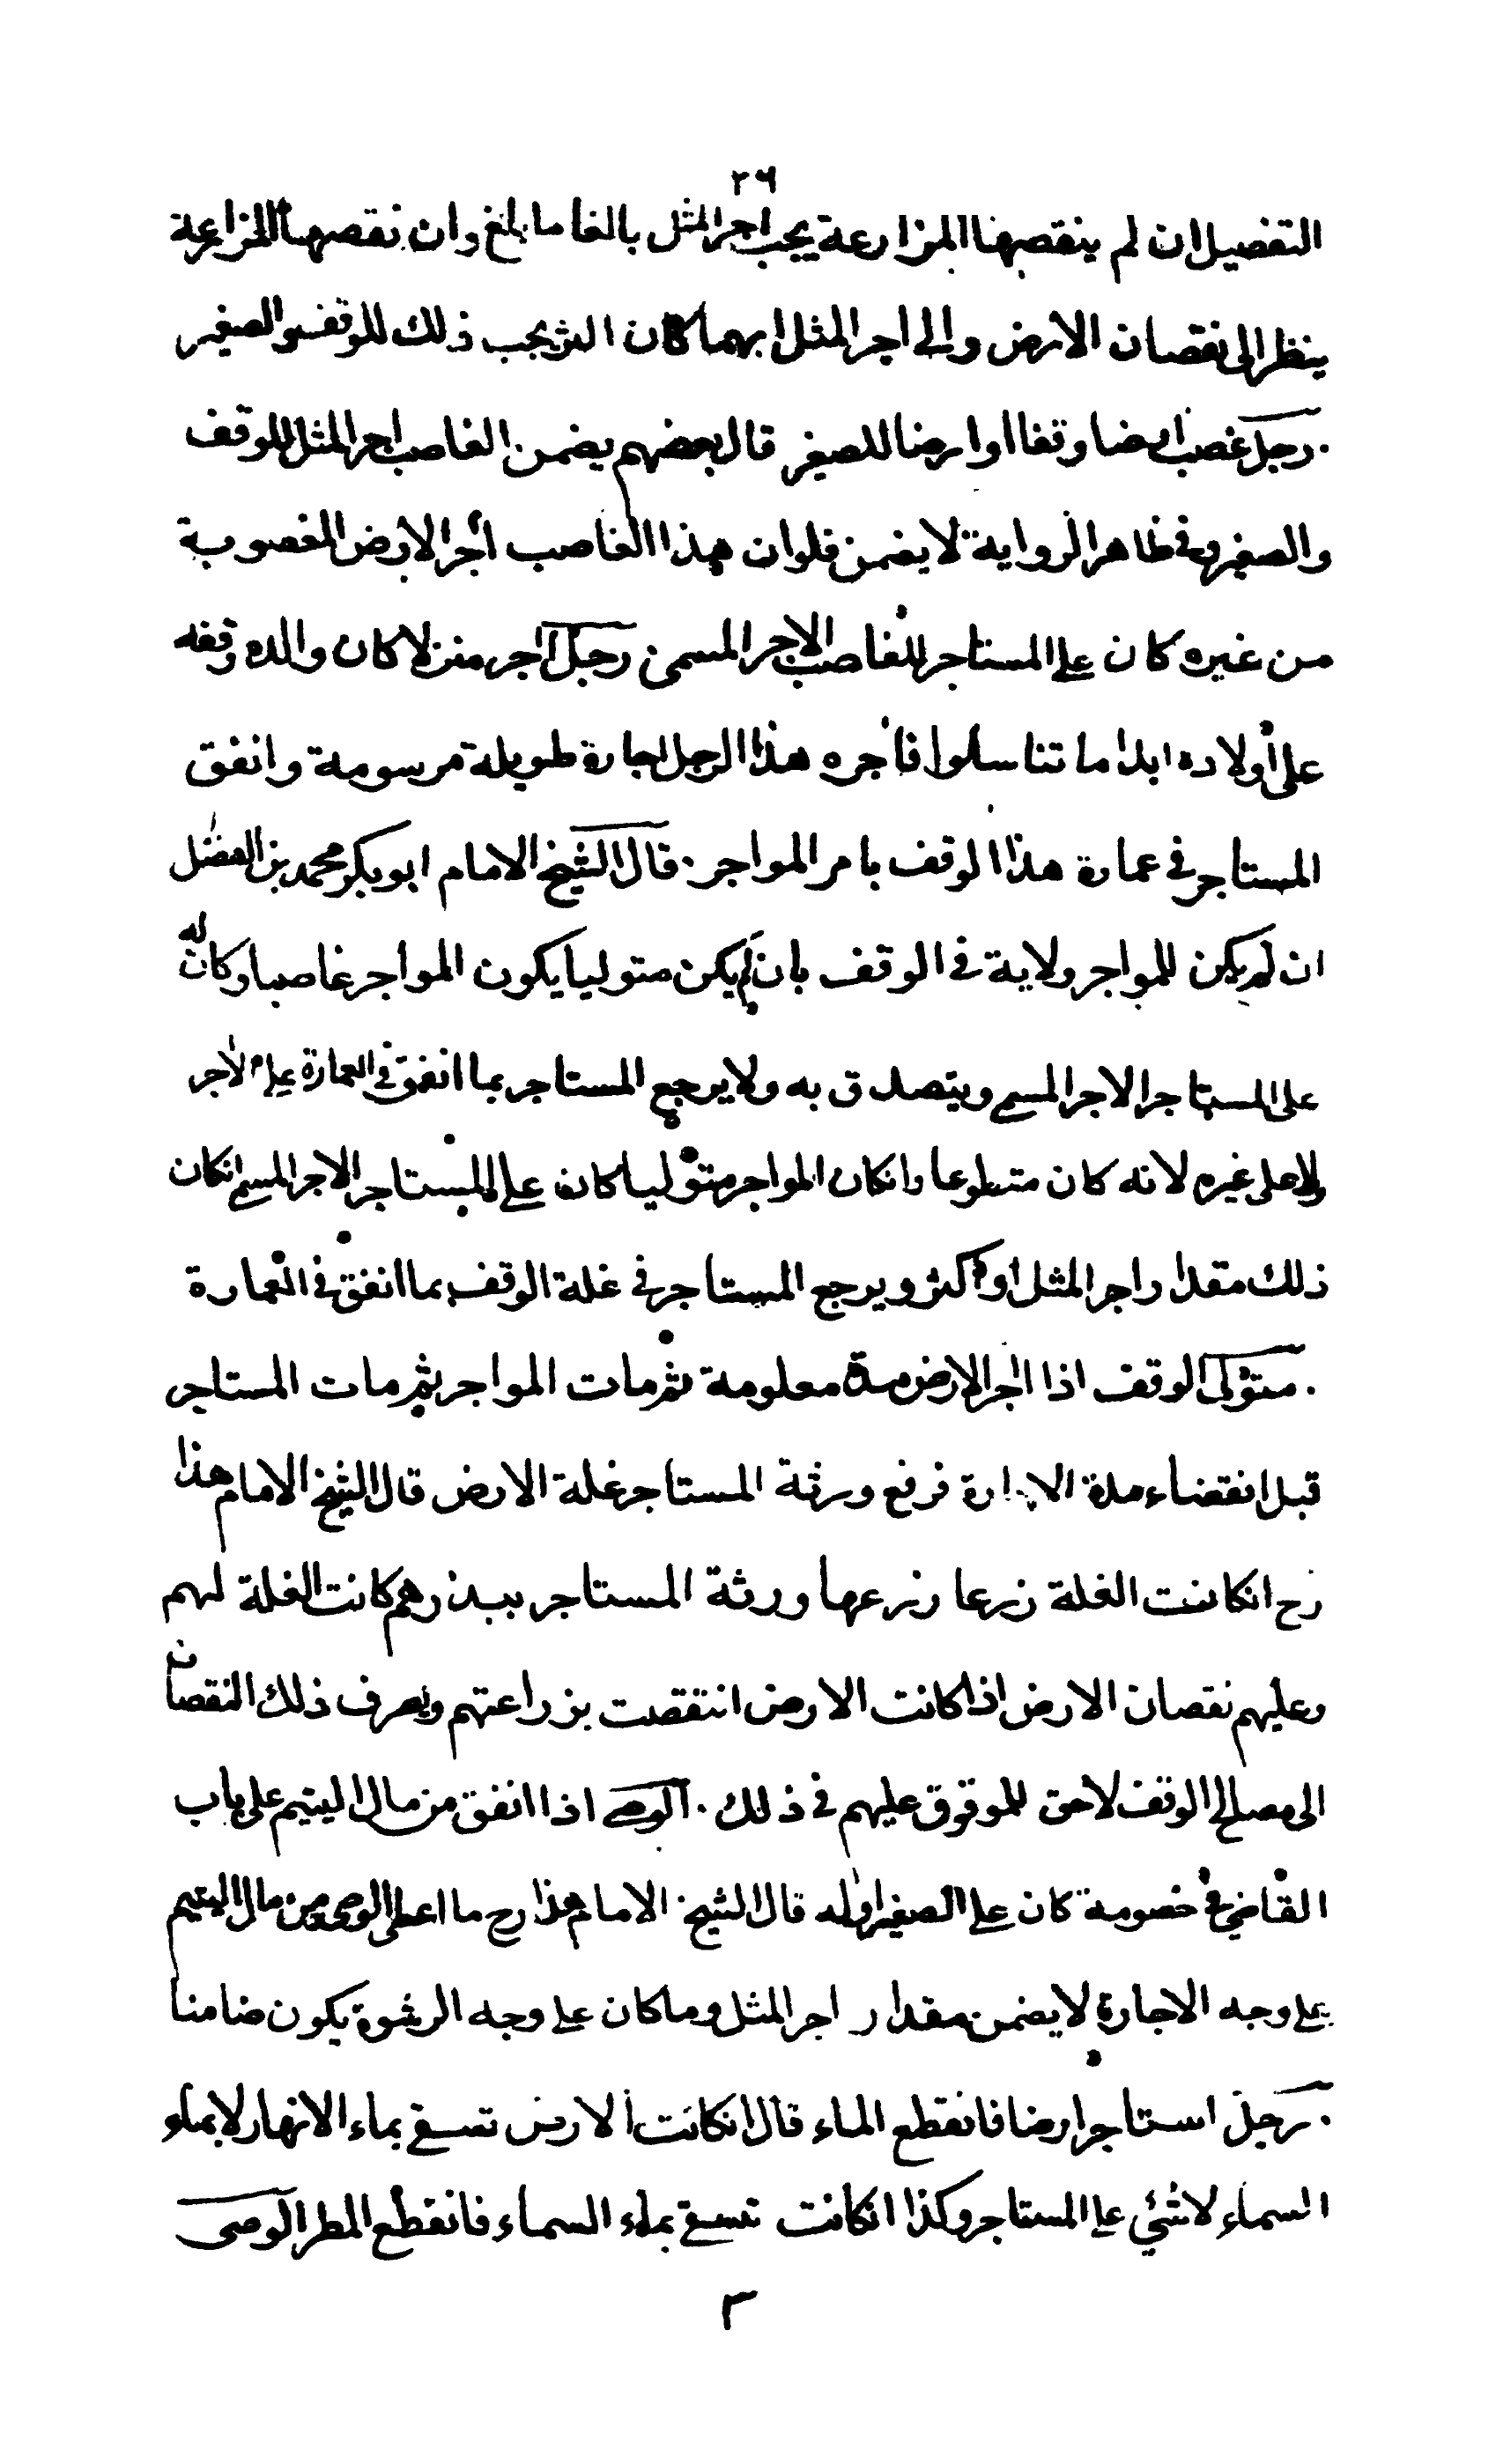 ٢٦
التفضيل ان لم ينقصها المزارعة يجب اجر المثل بالغا ما بلغ وان نقصها المزارعة
ينظر الى نقصان الارض والى اجر المثل ايهما كان اكثر يجب ذلك للوقف والصغير
. رجل غصب ارضا وقفا او ارضا للصغير قال بعضهم يضمن الغاصب اجر المثل للوقف
والصغير وفي ظاهر الرواية لا يضمن فلو ان هذا الغاصب أجر الارض المغصوبة
من غيره كان على المستاجر للغاصب الاجر المسمى رجل آجر منزلا كان والده وقفه
على أولاده ابدا ما تناسلوا فأجره هذا الرجل اجارة طويلة مرسومة وانفق
المستاجر في عمارة هذا الوقف بامر المواجر . قال الشيخ الامام ابو بكر محمد بن الفضل
ان لم يكن للمواجر ولاية في الوقف بان لم يكن متوليا يكون المواجر غاصبا وكان له
على المستاجر الاجر المسمى ويتصدق به ولا يرجع المستاجر بما انفق في العمارة على الآجر
ولا على غيره لانه كان متطوعا وانكان المواجر متوليا كان على المستاجر الاجر المسمى انكان
ذلك مقدار اجر المثل او اكثر ويرجع المستاجر في غلة الوقف بما انفق في العمارة
. متولى الوقف اذا اجر الارض مدة معلومة ثم مات المواجر ثم مات المستاجر
قبل انقضاء مدة الاجارة فرفع ورثة المستاجر غلة الارض قال الشيخ الامام هذا
رح انكانت الغلة زرعا وزرعها ورثة المستاجر ببذرهم كانت الغلة لهم
وعليهم نقصان الارض اذا كانت الارض انتقصت بزراعتهم ويصرف ذلك النقصان
الى مصالح الوقف لا حق للموقوق عليهم في ذلك . الوصي اذا انفق من مال اليتيم على باب
القاضي في خصومة كان على الصغير او له قال الشيخ الامام هذا رح ما اعطى الوصي من مال اليتيم
على وجه الاجارة لا يضمن مقدار اجر المثل وما كان على وجه الرشوة يكون ضامنا
. رجل استاجر ارضا فانقطع الماء قال انكانت الارض تسقى بماء الانهار لا بماء
السماء لا شئي على المستاجر وكذا انكانت تسقى بماء السماء فانقطع المطر الوصى
٣